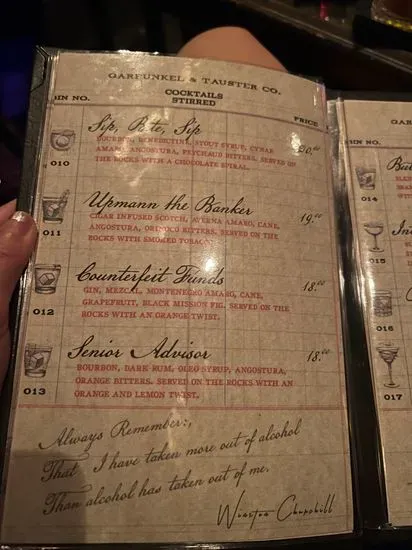 GARFUNKEL & TAUSTER CO.
COCKTAILS
STIRRED
BIN NO.
PRICE
Sip, Bite, Sip
20.00
BOURBON, BENEDICTINE, STOUT SYRUP, CYNAR
AMARO, ANGOSTURA, PEYCHAUD BITTERS. SERVED ON
THE ROCKS WITH A CHOCOLATE SPIRAL.
010
Upmann the Banker
19.00
CIGAR INFUSED SCOTCH, AVERNA AMARO, CANE,
ANGOSTURA, ORINOCO BITTERS. SERVED ON THE
ROCKS WITH SMOKED TOBACCO.
011
Counterfeit Funds
18.00
GIN, MEZCAL, MONTENEGRO AMARO, CANE,
GRAPEFRUIT, BLACK MISSION FIG. SERVED ON THE
ROCKS WITH AN ORANGE TWIST.
012
Senior Advisor
18.00
BOURBON, DARK RUM, OLEO SYRUP, ANGOSTURA,
ORANGE BITTERS. SERVED ON THE ROCKS WITH AN
ORANGE AND LEMON TWIST.
013
Always Remember:,
That I have taken more out of alcohol
Than alcohol has taken out of me.
Winston Churchill
GA
BIN NO.
014
015
016
017